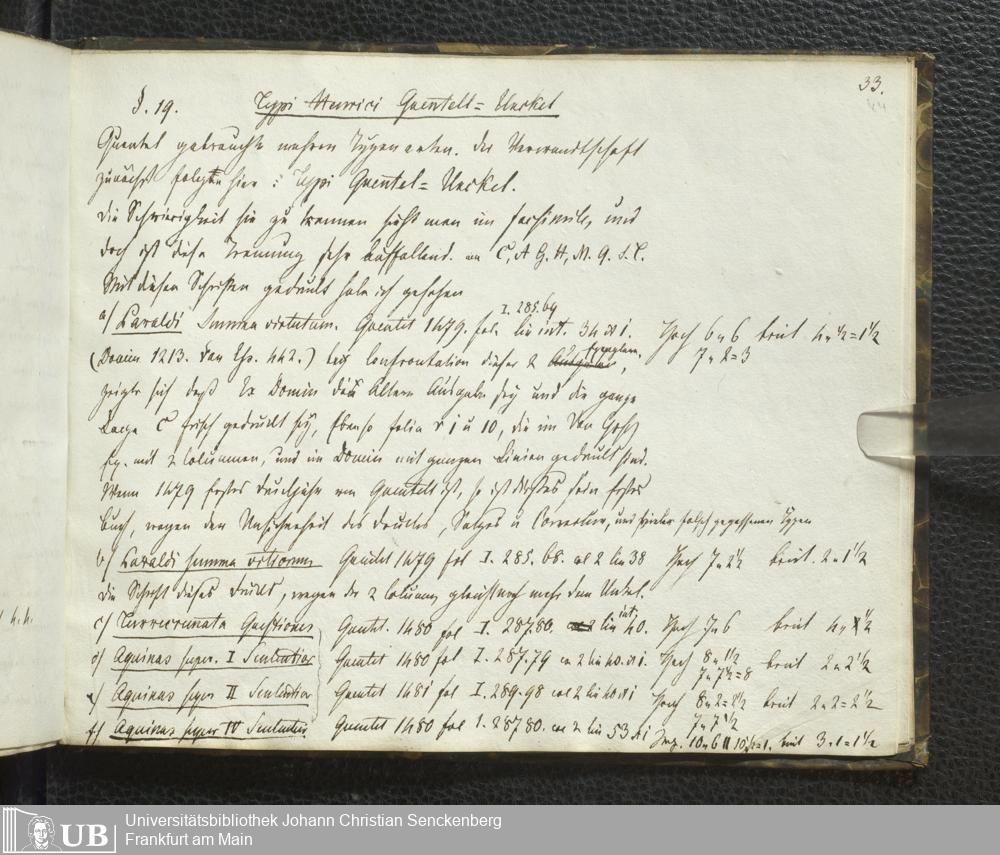 33.
44
§. 19. Typi Henrici Quentell= Unckel
Quentel gebrauchte mehrere Typenarten. der Verwandtschaft
zunächst folgten hier: Typi Quentel= Unckel.
die Schwierigkeit sie zu trennen sieht man im facsimile, und
doch ist diese Trennung sehr auffallend. an C, A G. H, M. Q. S. T.
Mit diesen Schriften gedruckt habe ich gesehen
I. 285. 64
a/ Paraldi Summa virtutum. Quentel 1479. fol. lin int. 34 Hoch 6 u 6 breit 4 u ½ = 1½
(Domin 1213. Exemplare, 7 u 2 = 3
zeigte sich daß Ex Domin die ältere Ausgabe sey und die ganze
Lage C frisch gedruckt sey, Ebenso folia r i u 10, die im Von
Ex. mit 2 columnen, und im Domin mit ganzen Linien gedruckt sind.
Wenn 1479 erstes Druckjahr von Quentell ist, so ist dieses sein erstes
Buch, wegen der Unsicherheit des Druckes, Satzes u Correctur, und vieler falsch gegossenen Typen
b/ Paraldi summa vitiorum Quentel 1479 fol I. 285. 68. col 2 lin 38 Hoch 7 u 2½ breit 2 u 1½
die Schrift dieses Drucks, wegen der 2 columnen
c/ Turrecremata Quaestiones Quentel. 1480 fol I. 287.80. lin int. 40. Hoch 7 u 6 breit 4 u ½
d) Aquinas super. I Sententiar Quentel 1480 fol I. 287.79 co 2 lin 40 Hoch 8 u 1½ breit 2 u 2½
7 u 7½ = 8
e) Aquinas super II Sententiar Quentel 1481 fol I. 289.98 col 2 lin 40 Hoch 8 u 2 = 2½ breit 2 u 2 = 2½
7 u 7½
f) Aquinas super IV Sententiar Quentel 1480 fol I. 287 80. co 2 lin 53 breit 3 u 1 = 1½
UB Universitätsbibliothek Johann Christian Senckenberg
Frankfurt am Main